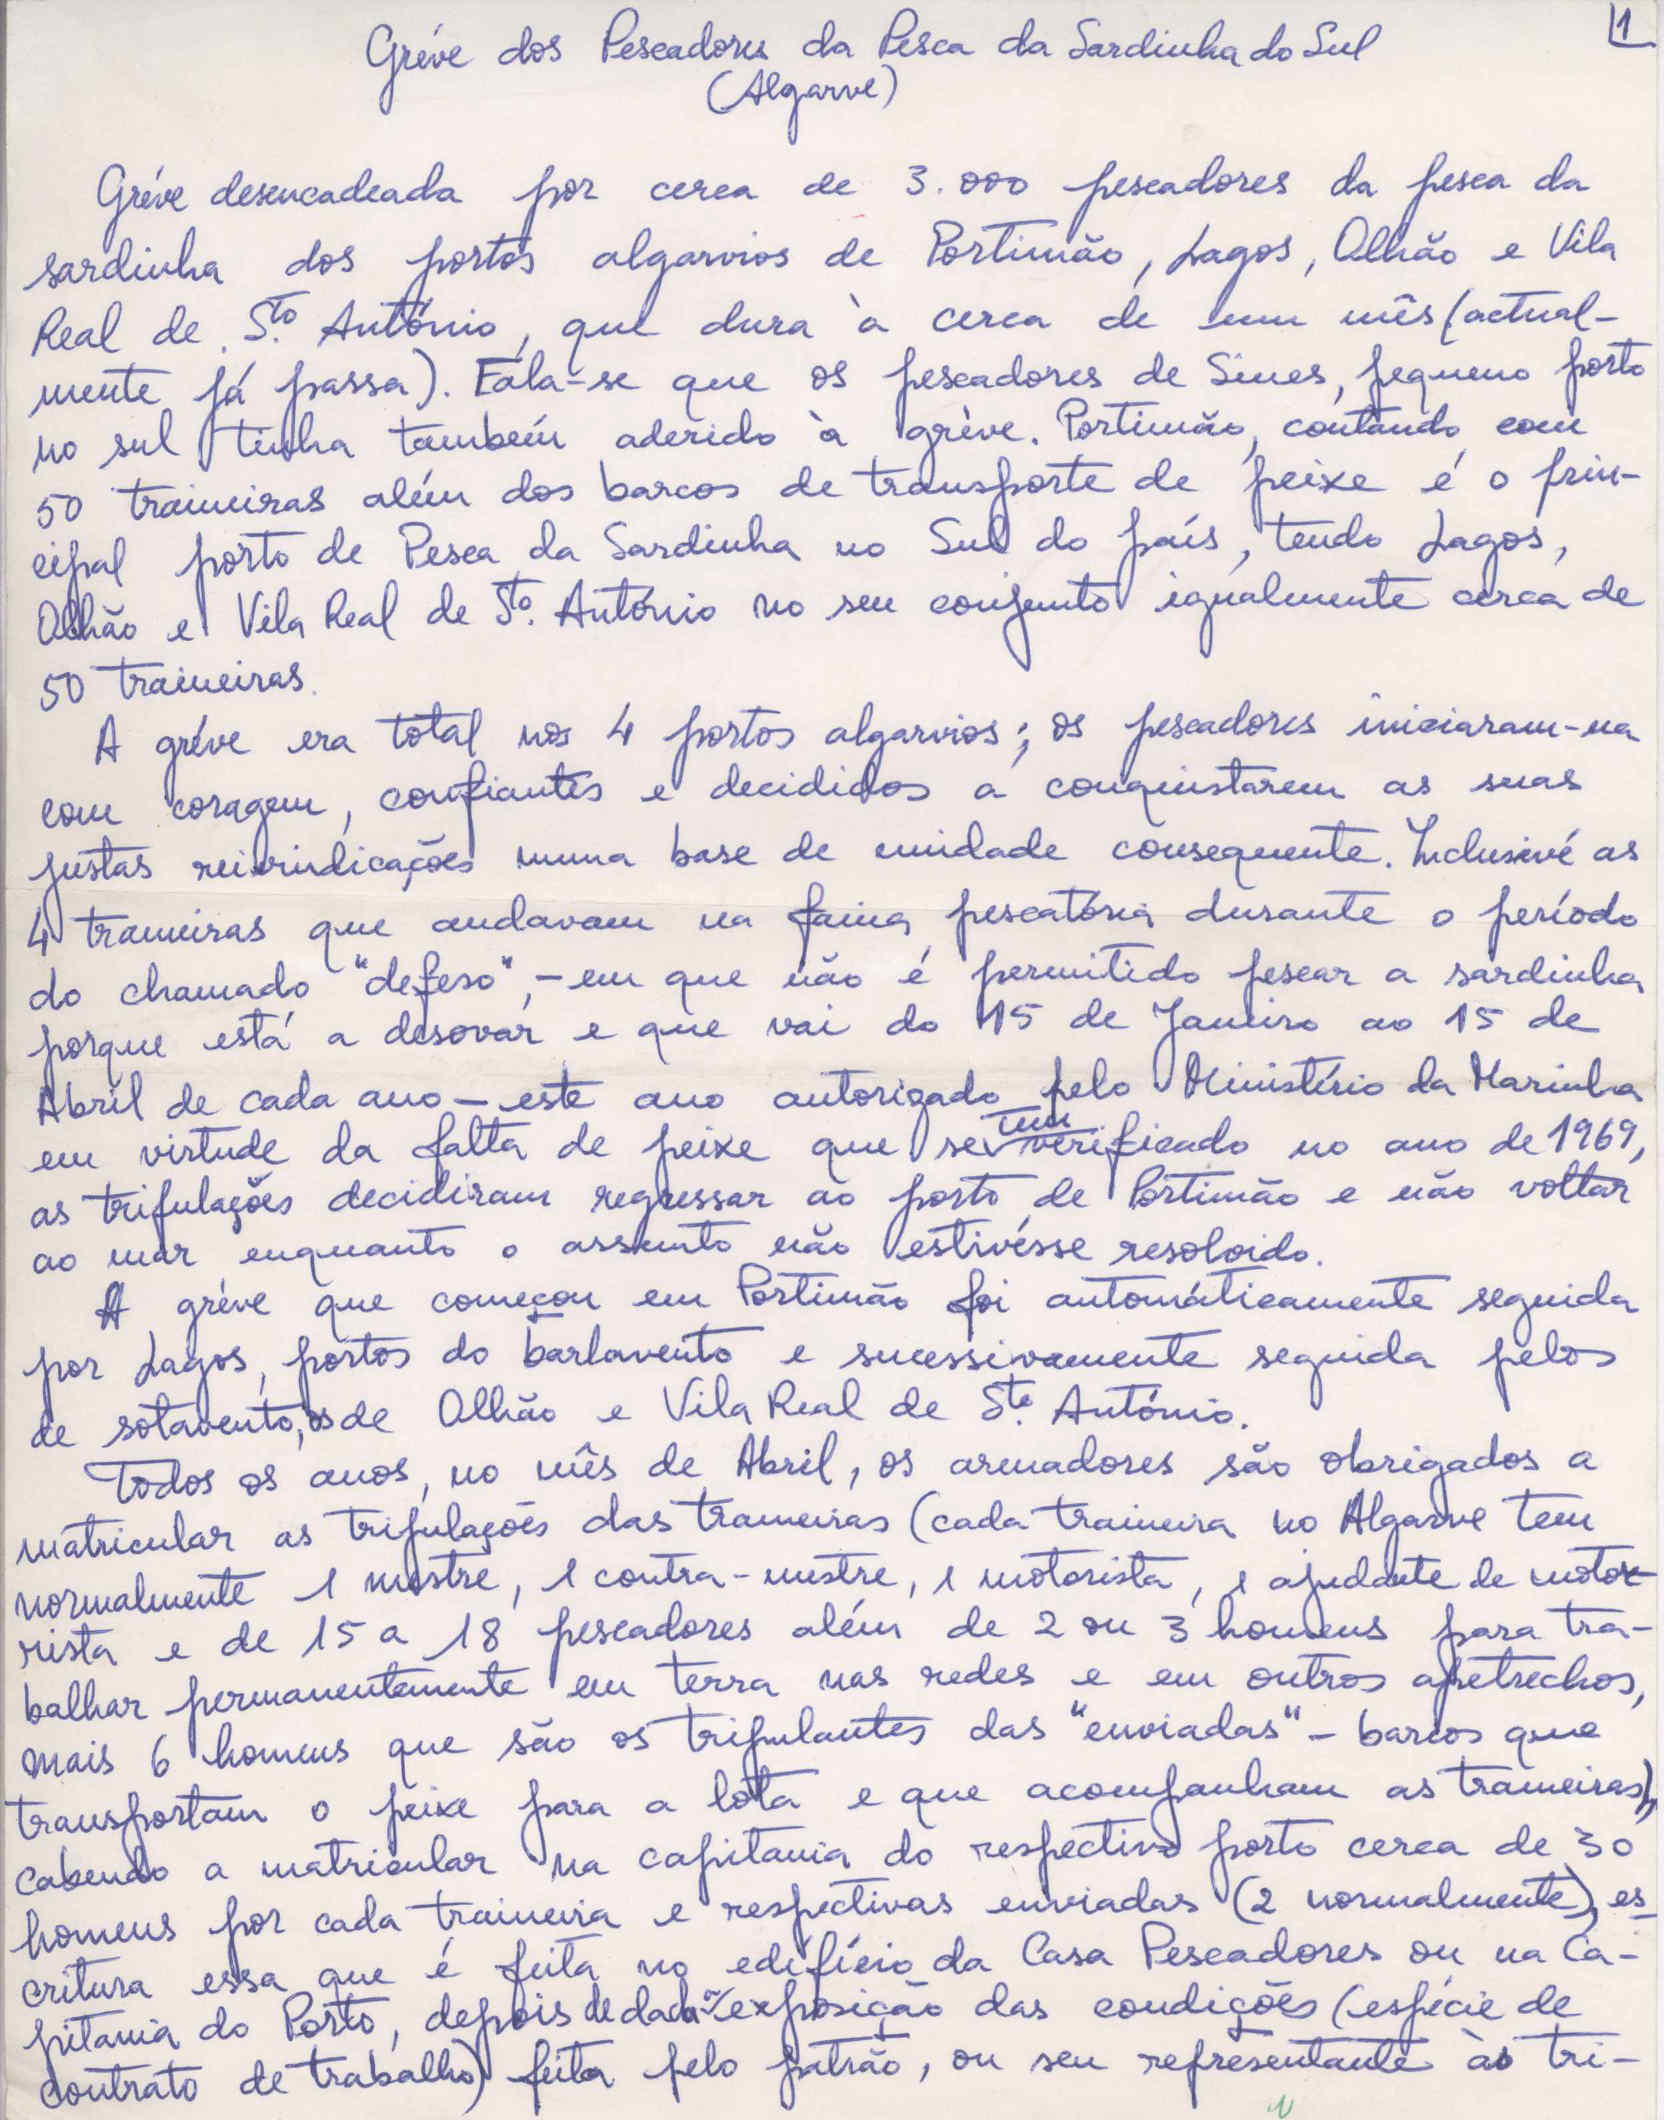 1
Gréve dos Pescadores da Pesca da Sardinha do Sul
(Algarve)
Gréve desencadeada por cerca de 3.000 pescadores da pesca da
sardinha dos portos algarvios de Portimão, Lagos, Olhão e Vila
Real de Sto. António, que dura à cerca de um mês (actual-
mente já passa). Fala-se que os pescadores de Sines, pequeno porto
no sul tinha também aderido à gréve. Portimão, contando com
50 traineiras além dos barcos de transporte de peixe é o prin-
cipal porto de Pesca da Sardinha no Sul do país, tendo Lagos,
Olhão e Vila Real de Sto. António no seu conjunto igualmente cerca de
50 traineiras.
A gréve era total nos 4 portos algarvios; os pescadores iniciaram-na
com coragem, confiantes e decididos a conquistarem as suas
justas reivindicações numa base de unidade consequente. Inclusivé as
4 traineiras que andavam na faina pescatória durante o período
do chamado "defeso", - em que não é permitido pescar a sardinha
porque está a desovar e que vai do 15 de Janeiro ao 15 de
Abril de cada ano - este ano autorizado pelo Ministério da Marinha
em virtude da falta de peixe que se tem verificado no ano de 1969,
as tripulações decidiram regressar ao porto de Portimão e não voltar
ao mar enquanto o assunto não estivésse resolvido.
A gréve que começou em Portimão foi automáticamente seguida
por Lagos, portos do barlavento e sucessivamente seguida pelos
de sotavento, os de Olhão e Vila Real de Sto. António.
Todos os anos, no mês de Abril, os armadores são obrigados a
matricular as tripulações das traineiras (cada traineira no Algarve tem
normalmente 1 mestre, 1 contra-mestre, 1 motorista, 1 ajudante de moto-
rista e de 15 a 18 pescadores além de 2 ou 3 homens para tra-
balhar permanentemente em terra nas redes e em outros apetrechos,
mais 6 homens que são os tripulantes das "enviadas" - barcos que
transportam o peixe para a lota e que acompanham as traineiras),
cabendo a matricular na capitania do respectivo porto cerca de 30
homens por cada traineira e respectivas enviadas (2 normalmente), es-
critura essa que é feita no edifício da Casa Pescadores ou na Ca-
pitania do Porto, depois de dada a exposição das condições (espécie de
contrato de trabalho) feita pelo patrão, ou seu representante às tri-